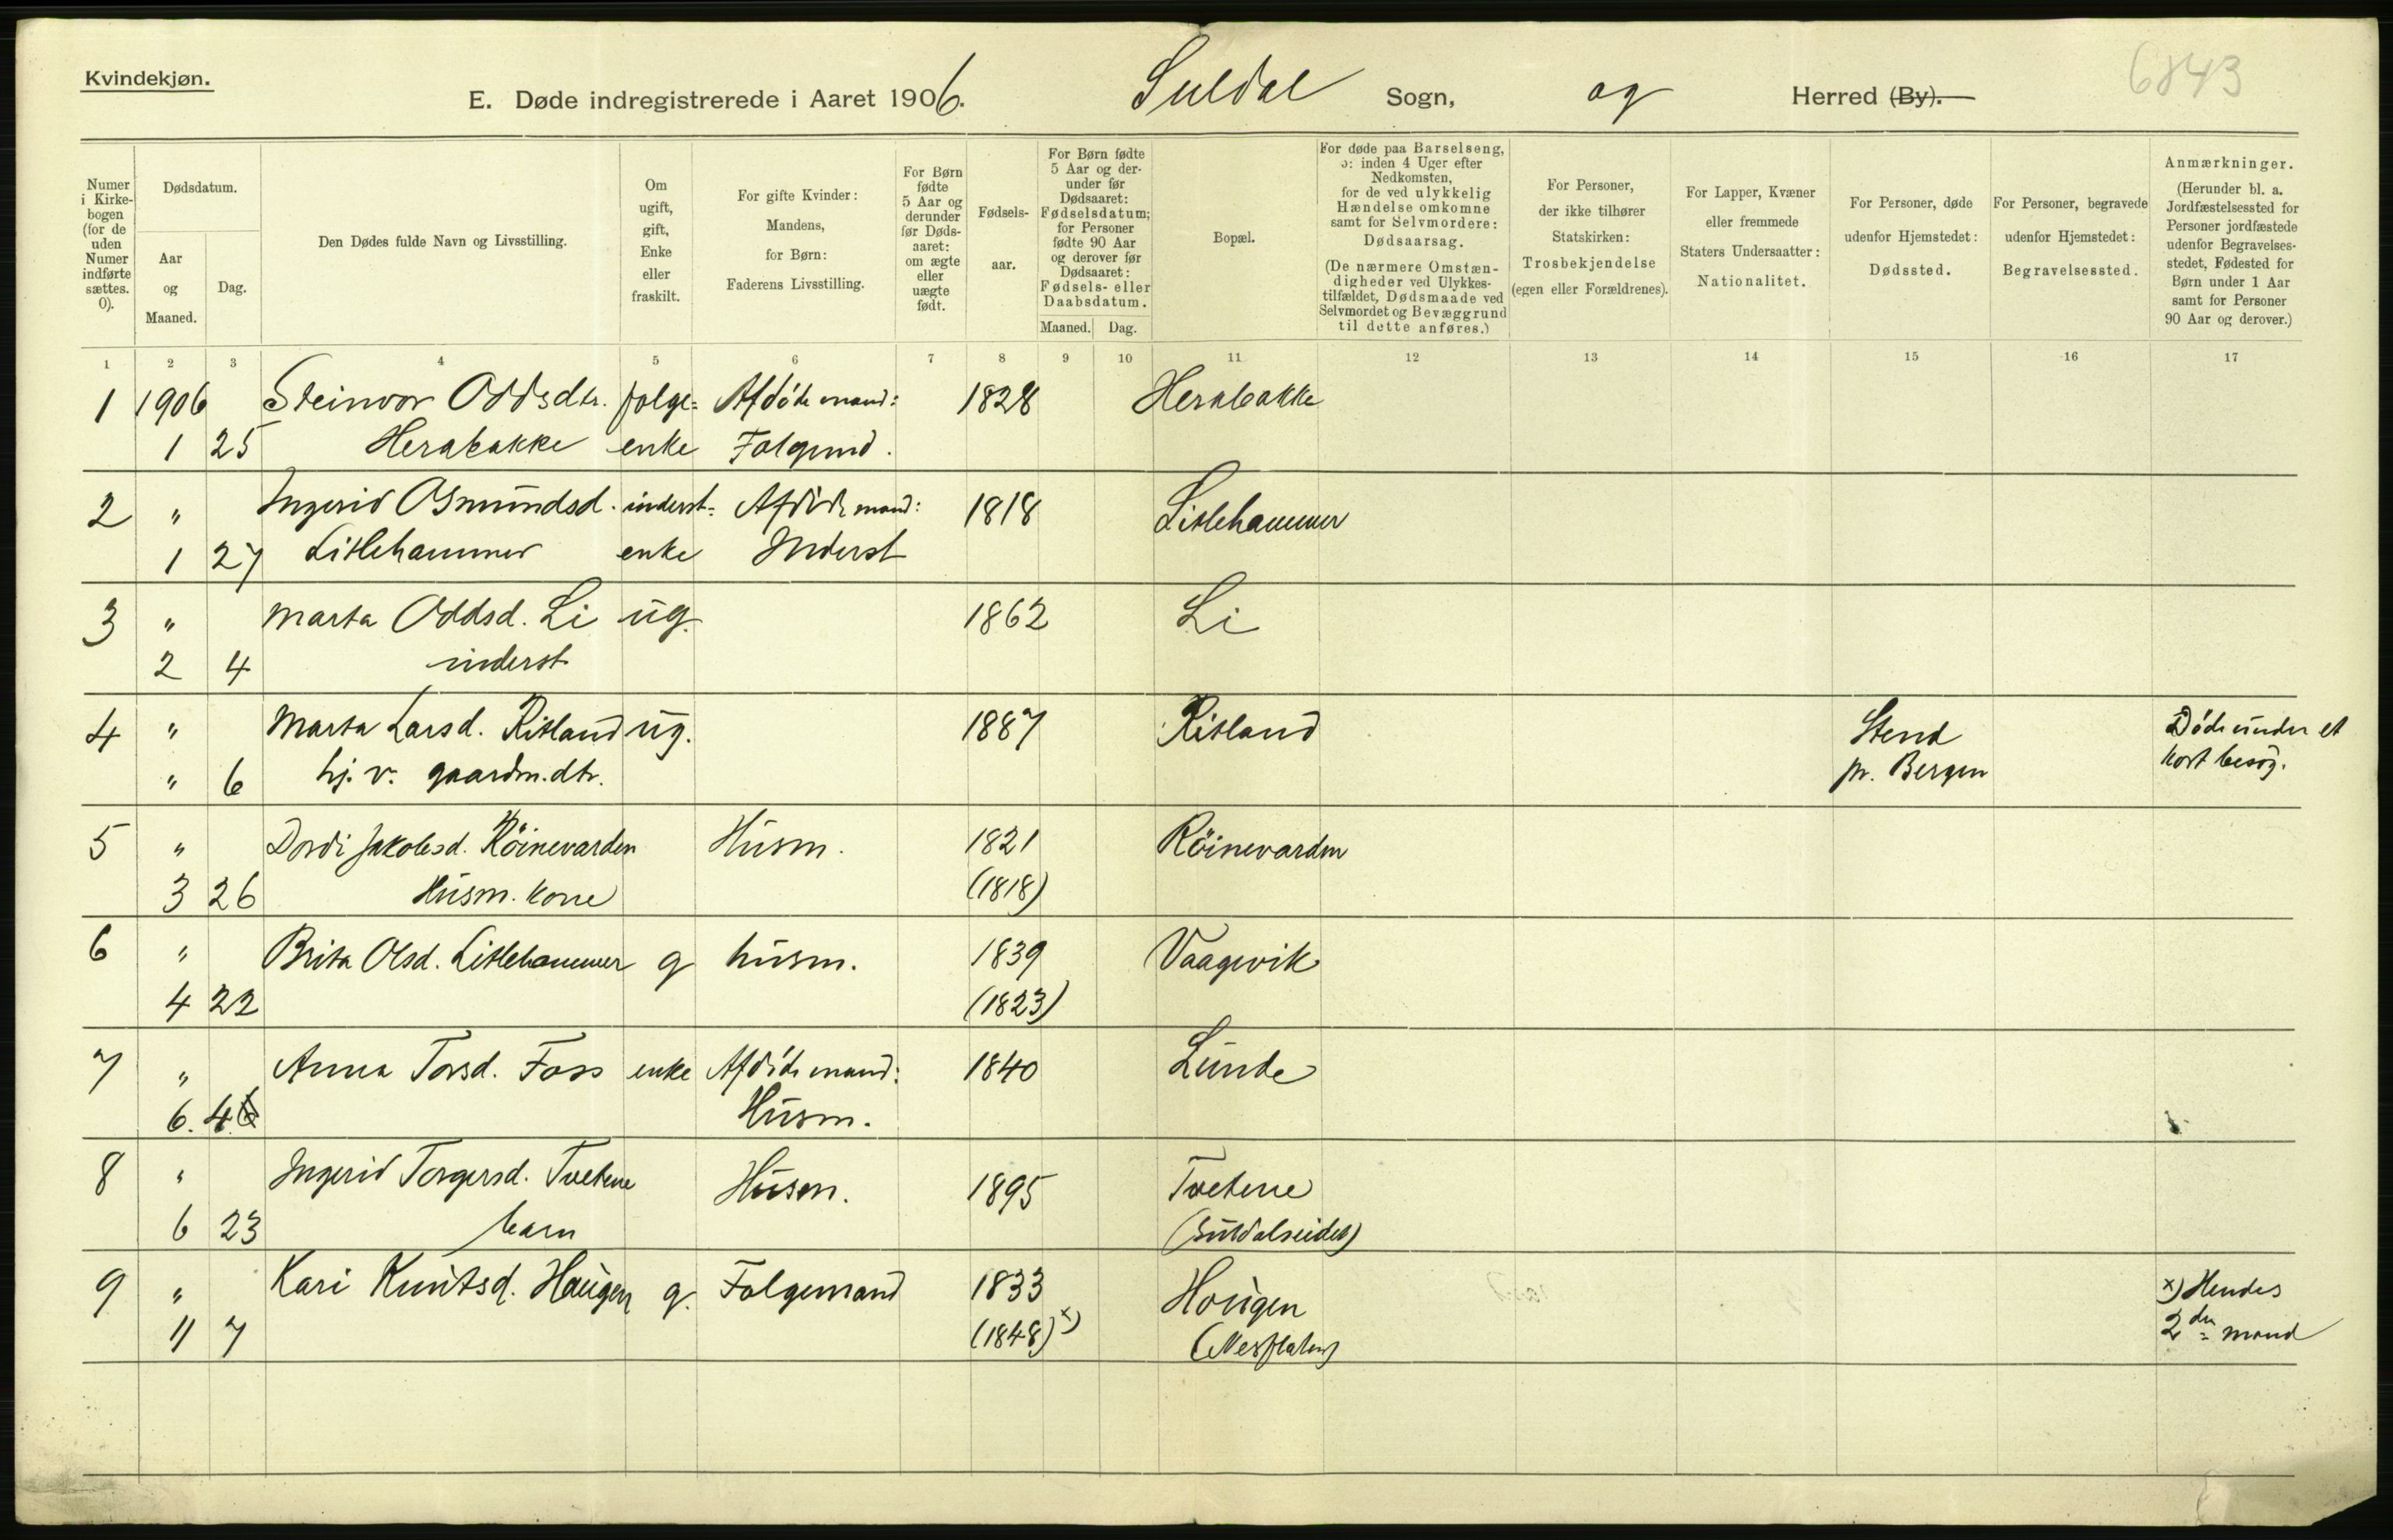 Kvindekjøn.
6843
E. Døde indregistrerede i Aaret 1906. Suldal Sogn, og Herred (By).
Numer i Kirkebogen (for de uden Numer indførte sættes. 0).
Dødsdatum.
Aar og Maaned.
Dag.
Den Dødes fulde Navn og Livsstilling.
Om ugift, gift, Enke eller fraskilt.
For gifte Kvinder: Mandens, for Børn: Faderens Livsstilling.
For Børn fødte 5 Aar og derunder før Dødsaaret: om ægte eller uægte født.
Fødselsaar.
For Børn fødte 5 Aar og derunder før Dødsaaret: Fødselsdatum; for Personer fødte 90 Aar og derover før Dødsaaret: Fødsels- eller Daabsdatum.
Maaned. Dag.
Bopæl.
For døde paa Barselseng, ɔ: inden 4 Uger efter Nedkomsten, for de ved ulykkelig Hændelse omkomne samt for Selvmordere: Dødsaarsag.
(De nærmere Omstændigheder ved Ulykkestilfældet, Dødsmaade ved Selvmordet og Bevæggrund til dette anføres.)
For Personer, der ikke tilhører Statskirken: Trosbekjendelse (egen eller Forældrenes).
For Lapper, Kvæner eller fremmede Staters Undersaatter: Nationalitet.
For Personer, døde udenfor Hjemstedet: Dødssted.
For Personer, begravede udenfor Hjemstedet: Begravelsessted.
Anmærkninger.
(Herunder bl. a. Jordfæstelsessted for Personer jordfæstede udenfor Begravelsesstedet, Fødested for Børn under 1 Aar samt for Personer 90 Aar og derover.)
1 2 3 4 5 6 7 8 9 10 11 12 13 14 15 16 17
1 1906 Steinvor Oddsdtr. folge= Afdöde mand: 1828 Herabakke
1 25 Herabakke enke Folgemd.
2 " Ingerid Osmundsd. inderst= Afdöde mand: 1818 Litlehammer
1 27 Litlehammer enke Inderst
3 " Marta Oddsd. Li ug. 1862 Li
2 4 inderst
4 " Marta Larsd. Ritland ug. 1887 Ritland Stend Döde under et
" 6 hj. v. gaardm.dtr. pr. Bergen kort besög.
5 " Dordi Jakobsd. Röinevarden Husm. 1821 Röinevarden
3 26 Husm. kone (1818)
6 " Brita Olsd. Litlehammer g husm. 1839 Vaagevik
4 22 (1823)
7 " Anna Torsd. Foss enke Afdöde mand: 1840 Lunde
6. 4 Husm.
8 " Ingerid Torgersd. Tvetene Husm. 1895 Tvetene
6 23 barn (Suldalseidet)
9 " Kari Knutsd. Haugen g. Folgemand 1833 Haugen x) Hendes
11 7 (1848) x) (Nesflaten) 2den mand